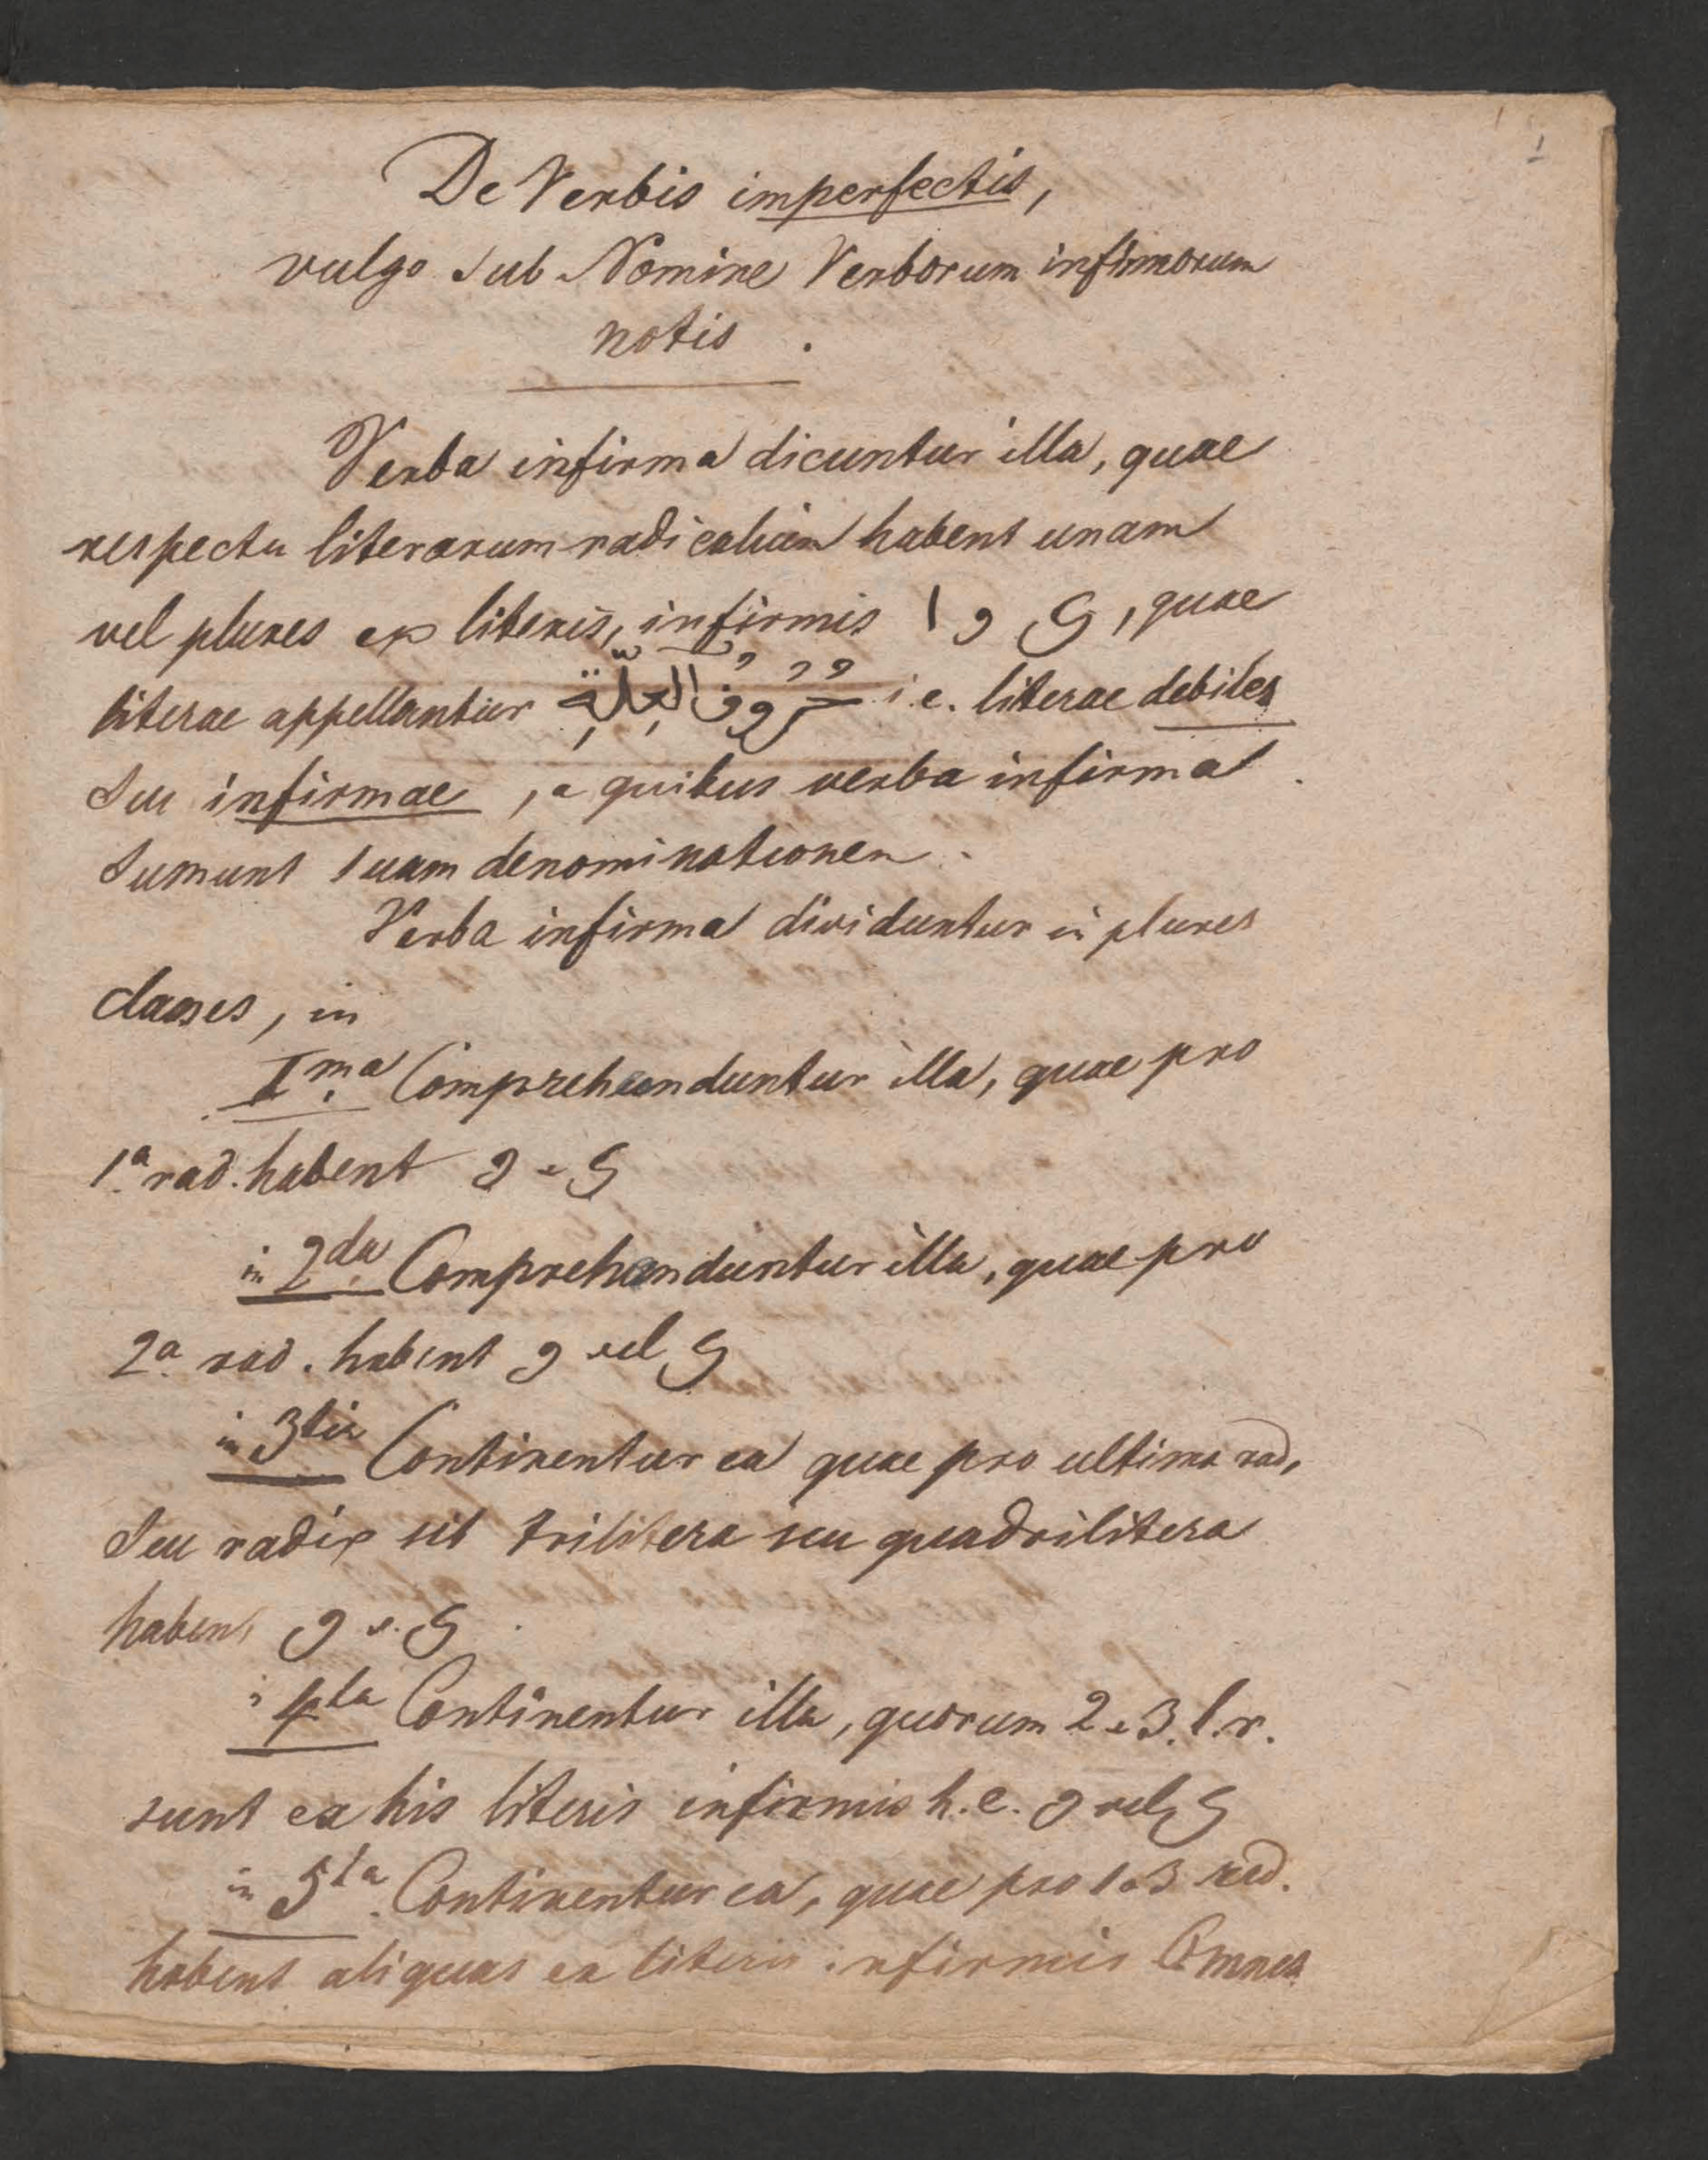 1
De Verbis imperfectis,
vulgo sub Nomine Verborum infirmorum
notis .
Verba infirma dicuntur illa, quae
respectu literarum radicalium habent unam
vel plures ex literis, infirmis ا و ي, quae
literae appellantur حُرُوفُ العِلَّةِ i.e. literae debiles
seu infirmae, a quibus verba infirma
sumunt suam denominationem.
Verba infirma dividuntur in plures
classes, in
I.ma Comprehenduntur illa, quae pro
1.a rad. habent و v ي
in 2.da Comprehenduntur illa, quae pro
2.a rad. habent و vel ي
in 3tia Continentur ea quae pro ultima rad,
seu radix sit trilitera seu quadrilitera
habent و v. ي
in 4ta Continentur illa, quorum 2 e 3. l. r.
sunt ex his literis infirmis h. e. و vel ي
in 5ta. Continentur ea, quae pro 1 e 3 rad.
habent aliquas ex literis infirmis Omnes